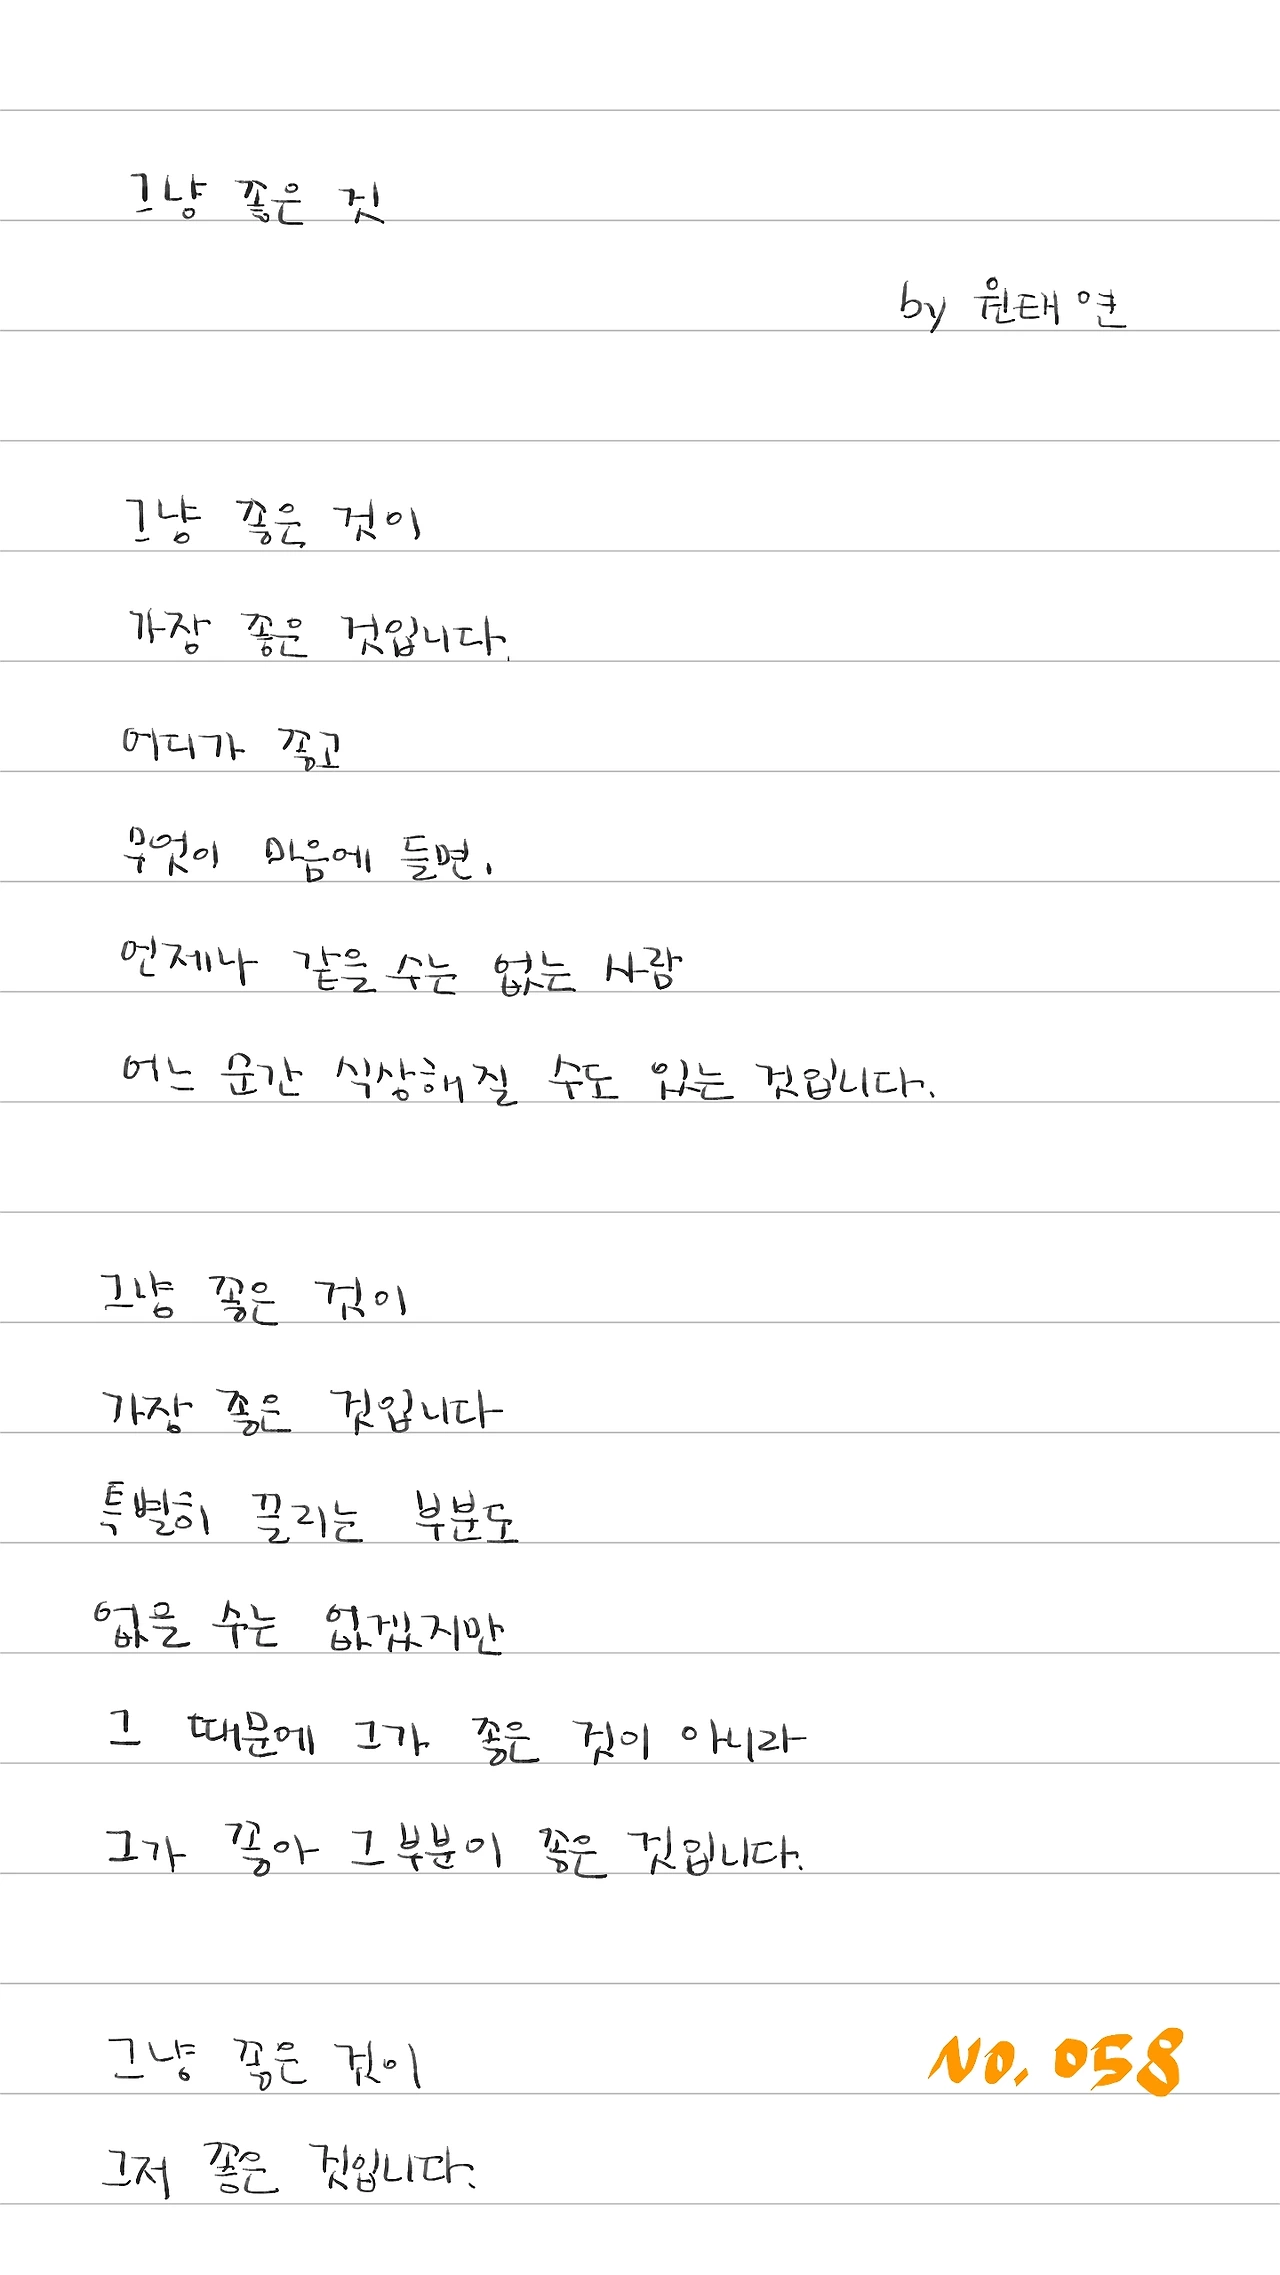 그냥 좋은 것
by 원태연
그냥 좋은 것이
가장 좋은 것입니다.
어디가 좋고
무엇이 마음에 들면,
언제나 같을 수는 없는 사람
어느 순간 식상해질 수도 있는 것입니다.
그냥 좋은 것이
가장 좋은 것입니다
특별히 끌리는 부분도
없을 수는 없겠지만
그 때문에 그가 좋은 것이 아니라
그가 좋아 그 부분이 좋은 것입니다.
그냥 좋은 것이
NO. 058
그저 좋은 것입니다.